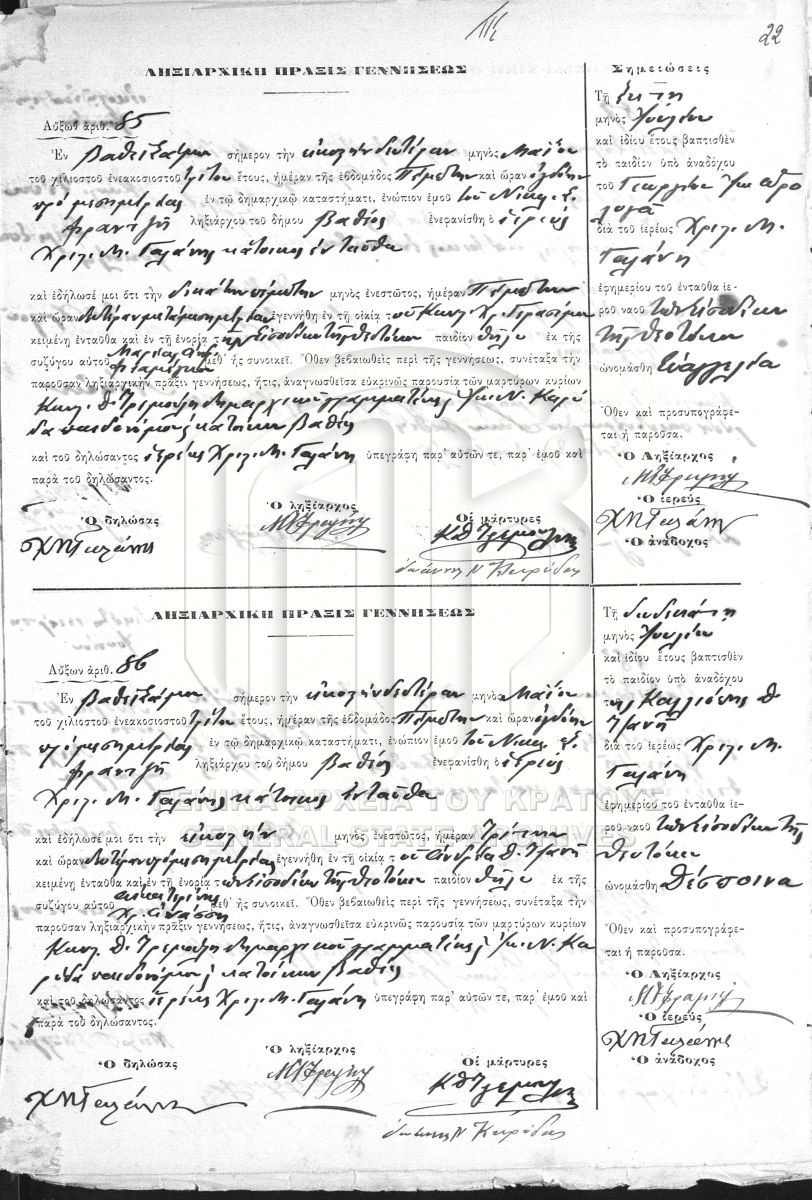 22
ΛΗΞΙΑΡΧΙΚΗ ΠΡΑΞΙΣ ΓΕΝΝΗΣΕΩΣ
Αὔξων ἀριθ. 85
Ἐν Βαθεῖ Σάμου σήμερον τὴν εἰκοστὴν δευτέραν μηνὸς Μαΐου
τοῦ χιλιοστοῦ ἐνεακοσιοστοῦ τρίτου ἔτους, ἡμέραν τῆς ἑβδομάδος Πέμπτην καὶ ὥραν ὀγδόην
πρὸ μεσημβρίας ἐν τῷ δημαρχικῷ καταστήματι, ἐνώπιον ἐμοῦ τοῦ Νικολ.
Φραντζῆ ληξιάρχου τοῦ δήμου Βαθέος ἐνεφανίσθη ὁ ἱερεὺς
Χριζ. Μ. Γαλάνης κάτοικος ἐνταῦθα
καὶ ἐδήλωσέ μοι ὅτι τὴν δεκάτην πέμπτην μηνὸς ἐνεστῶτος, ἡμέραν Πέμπτην
καὶ ὥραν δευτέραν μετὰ μεσημβρίαν ἐγεννήθη ἐν τῇ οἰκίᾳ τοῦ Κων. Χρ. Γερασίμου
κειμένῃ ἐνταῦθα καὶ ἐν τῇ ἐνορίᾳ τῶν Εἰσοδίων τῆς Θεοτόκου παιδίον θῆλυ ἐκ τῆς
συζύγου αὐτοῦ Μαρίας μεθ' ἧς συνοικεῖ. Ὅθεν βεβαιωθεὶς περὶ τῆς γεννήσεως, συνέταξα τὴν
παροῦσαν ληξιαρχικὴν πρᾶξιν γεννήσεως, ἥτις, ἀναγνωσθεῖσα εὐκρινῶς παρουσίᾳ τῶν μαρτύρων κυρίων
Κων. Θ. Τρεμούλη δημαρχικοῦ γραμματέως Ἰω. Ν. Καρύ
δα παιδονόμου κατοίκων Βαθέος
καὶ τοῦ δηλώσαντος ἱερέως Χριζ. Μ. Γαλάνη ὑπεγράφη παρ' αὐτῶν τε, παρ' ἐμοῦ καὶ
παρὰ τοῦ δηλώσαντος.
Ὁ δηλώσας Ὁ ληξίαρχος Οἱ μάρτυρες
Χ Μ Γαλάνης
Σημειώσεις
Τῇ ἕκτῃ
μηνὸς Ἰουλίου
καὶ ἰδίου ἔτους βαπτισθὲν
τὸ παιδίον ὑπὸ ἀναδόχου
τοῦ Γεωργίου
διὰ τοῦ ἱερέως Χριζ. Μ.
Γαλάνη
ἐφημερίου τοῦ ἐνταῦθα ἱε-
ροῦ ναοῦ τῶν Εἰσοδίων
τῆς Θεοτόκου
ὠνομάσθη Εὐαγγελία
Ὅθεν καὶ προσυπογράφε-
ται ἡ παροῦσα.
Ὁ Ληξίαρχος
Ὁ ἱερεὺς
Χ Μ Γαλάνης
Ὁ ἀνάδοχος
ΛΗΞΙΑΡΧΙΚΗ ΠΡΑΞΙΣ ΓΕΝΝΗΣΕΩΣ
Αὔξων ἀριθ. 86
Ἐν Βαθεῖ Σάμου σήμερον τὴν εἰκοστὴν δευτέραν μηνὸς Μαΐου
τοῦ χιλιοστοῦ ἐνεακοσιοστοῦ τρίτου ἔτους, ἡμέραν τῆς ἑβδομάδος Πέμπτην καὶ ὥραν ὀγδόην
πρὸ μεσημβρίας ἐν τῷ δημαρχικῷ καταστήματι, ἐνώπιον ἐμοῦ τοῦ Νικολ.
Φραντζῆ ληξιάρχου τοῦ δήμου Βαθέος ἐνεφανίσθη ὁ ἱερεὺς
Χριζ. Μ. Γαλάνης κάτοικος ἐνταῦθα
ΓΕΝΙΚΑ ΑΡΧΕΙΑ ΤΟΥ ΚΡΑΤΟΥΣ
GENERAL STATE ARCHIVES
καὶ ἐδήλωσέ μοι ὅτι τὴν εἰκοστὴν μηνὸς ἐνεστῶτος, ἡμέραν Τρίτην
καὶ ὥραν δευτέραν πρὸ μεσημβρίας ἐγεννήθη ἐν τῇ οἰκίᾳ τοῦ Ἀνδρέα Θ. Τζανῆ
κειμένῃ ἐνταῦθα καὶ ἐν τῇ ἐνορίᾳ τῶν Εἰσοδίων τῆς Θεοτόκου παιδίον θῆλυ ἐκ τῆς
συζύγου αὐτοῦ Αἰκατερίνης μεθ' ἧς συνοικεῖ. Ὅθεν βεβαιωθεὶς περὶ τῆς γεννήσεως, συνέταξα τὴν
παροῦσαν ληξιαρχικὴν πρᾶξιν γεννήσεως, ἥτις, ἀναγνωσθεῖσα εὐκρινῶς παρουσίᾳ τῶν μαρτύρων κυρίων
Κων. Θ. Τρεμούλη δημαρχικοῦ γραμματέως Ἰω. Ν. Κα
ρύδα παιδονόμου κατοίκων Βαθέος
καὶ τοῦ δηλώσαντος ἱερέως Χριζ. Μ. Γαλάνη ὑπεγράφη παρ' αὐτῶν τε, παρ' ἐμοῦ καὶ
παρὰ τοῦ δηλώσαντος.
Ὁ δηλώσας Ὁ ληξίαρχος Οἱ μάρτυρες
Χ Μ Γαλάνης
Τῇ δωδεκάτῃ
μηνὸς Ἰουλίου
καὶ ἰδίου ἔτους βαπτισθὲν
τὸ παιδίον ὑπὸ ἀναδόχου
τῆς Καλλιόπης Θ.
Τζανῆ
διὰ τοῦ ἱερέως Χριζ. Μ.
Γαλάνη
ἐφημερίου τοῦ ἐνταῦθα ἱε-
ροῦ ναοῦ τῶν Εἰσοδίων τῆς
Θεοτόκου
ὠνομάσθη Δέσποινα
Ὅθεν καὶ προσυπογράφε-
ται ἡ παροῦσα.
Ὁ Ληξίαρχος
Ὁ ἱερεὺς
Χ Μ Γαλάνης
Ὁ ἀνάδοχος